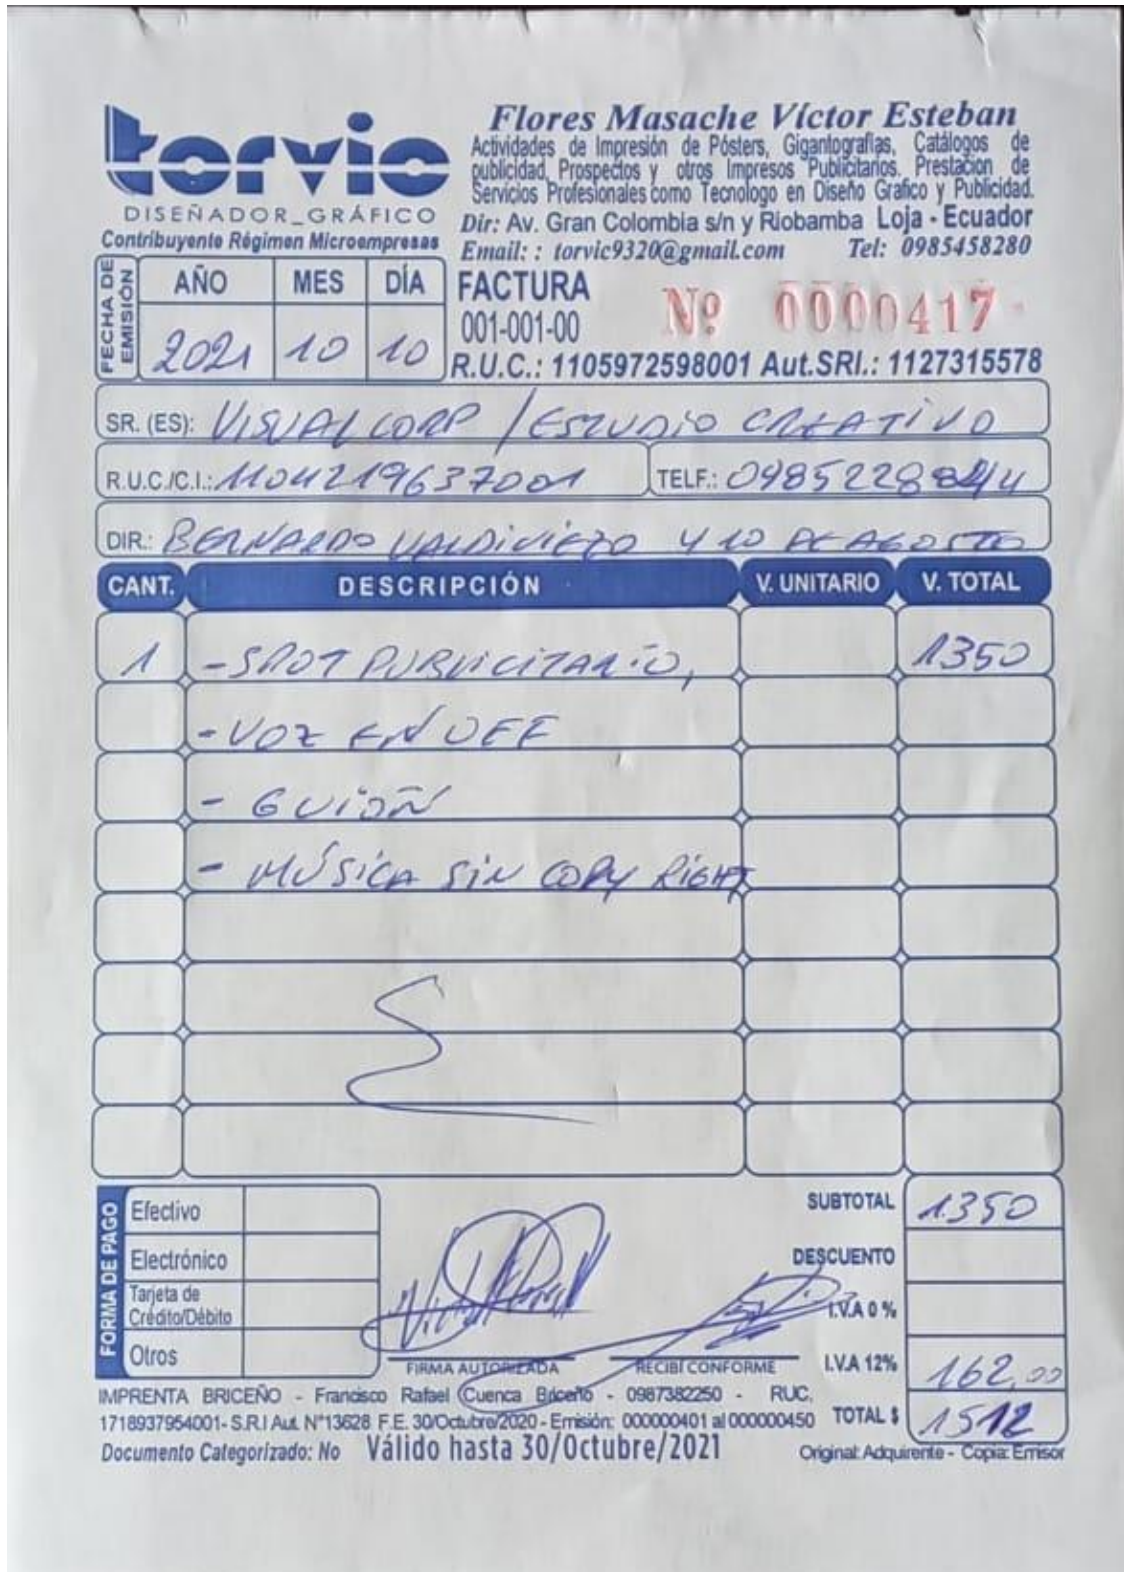 torvic
DISEÑADOR_GRÁFICO
Contribuyente Régimen Microempresas
Flores Masache Víctor Esteban
Actividades de Impresión de Pósters, Gigantografías, Catálogos de
publicidad, Prospectos y otros Impresos Publicitarios. Prestación de
Servicios Profesionales como Tecnologo en Diseño Grafico y Publicidad.
Dir: Av. Gran Colombia s/n y Riobamba Loja - Ecuador
Email: : torvic9320@gmail.com Tel: 0985458280
FECHA DE EMISIÓN
AÑO MES DÍA
2021 10 10
FACTURA
001-001-00 Nº 0000417
R.U.C.: 1105972598001 Aut.SRI.: 1127315578
SR. (ES): VISUALCORP / ESTUDIO CREATIVO
R.U.C./C.I.: 1104219637001 TELF.: 098522
DIR.: BERNARDO VALDIVIEZO Y 10 DE AGOSTO
CANT. DESCRIPCIÓN V. UNITARIO V. TOTAL
1 - SPOT PUBLICITARIO, 1350
- VOZ EN OFF
- GUIÓN
- MÚSICA SIN COPY RIGHT
FORMA DE PAGO
Efectivo
Electrónico
Tarjeta de
Crédito/Débito
Otros
FIRMA AUTORIZADA RECIBI CONFORME
SUBTOTAL 1.350
DESCUENTO
I.V.A 0 %
I.V.A 12% 162,00
TOTAL $ 1512
IMPRENTA BRICEÑO - Francisco Rafael Cuenca Briceño - 0987382250 - RUC.
1718937954001- S.R.I Aut. N°13628 F.E. 30/Octubre/2020 - Emisión: 000000401 al 000000450
Documento Categorizado: No Válido hasta 30/Octubre/2021 Original: Adquirente - Copia: Emisor